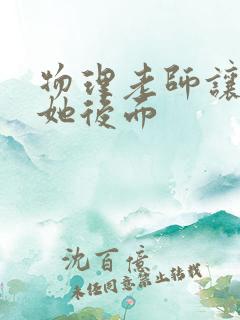 物理老師讓
她後而
沈百億
未任同意禁止转载